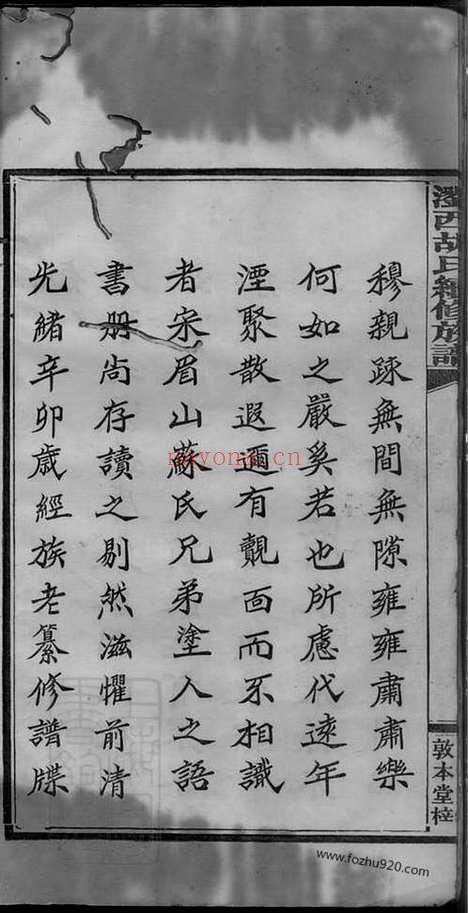 西胡氏續修族譜
敦本堂梓
穆親疎無間無隙雍雍肅肅樂
何如之嚴奚若也所慮代遠年
湮聚散遐邇有覿面而不相識
者宋眉山蘇氏兄弟塗人之語
書冊尚存讀之剔然滋懼前清
光緒辛卯歲經族老纂修譜牒
nayona.cn
www.fozhu920.com